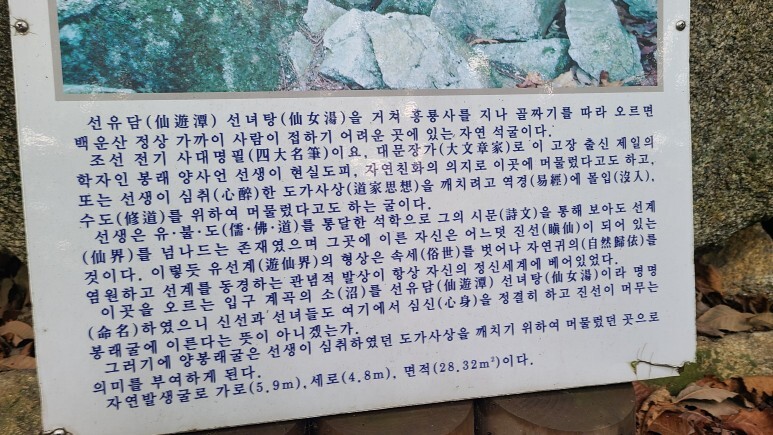 선유담(仙遊潭) 선녀탕(仙女湯)을 거쳐 흥룡사를 지나 골짜기를 따라 오르면
백운산 정상 가까이 사람이 접하기 어려운 곳에 있는 자연 석굴이다.
조선 전기 사대명필(四大名筆)이요, 대문장가(大文章家)로 이 고장 출신 제일의
학자인 봉래 양사언 선생이 현실도피, 자연친화의 의지로 이곳에 머물렀다고도 하고,
또는 선생이 심취(心醉)한 도가사상(道家思想)을 깨치려고 역경(易經)에 몰입(沒入),
수도(修道)를 위하여 머물렀다고도 하는 굴이다.
선생은 유·불·도(儒·佛·道)를 통달한 석학으로 그의 시문(詩文)을 통해 보아도 선계
(仙界)를 넘나드는 존재였으며 그곳에 이른 자신은 어느덧 진선(曠仙)이 되어 있는
것이다. 이렇듯 유선계(遊仙界)의 형상은 속세(俗世)를 벗어나 자연귀의(自然歸依)를
염원하고 선계를 동경하는 관념적 발상이 항상 자신의 정신세계에 베어있었다.
이곳을 오르는 입구 계곡의 소(沼)를 선유담(仙遊潭) 선녀탕(仙女湯)이라 명명
(命名)하였으니 신선과 선녀들도 여기에서 심신(心身)을 정결히 하고 진선이 머무는
봉래굴에 이른다는 뜻이 아니겠는가.
그러기에 양봉래굴은 선생이 심취하였던 도가사상을 깨치기 위하여 머물렀던 곳으로
의미를 부여하게 된다.
자연발생굴로 가로(5.9m),세로(4.8m), 면적(28.32m²)이다.